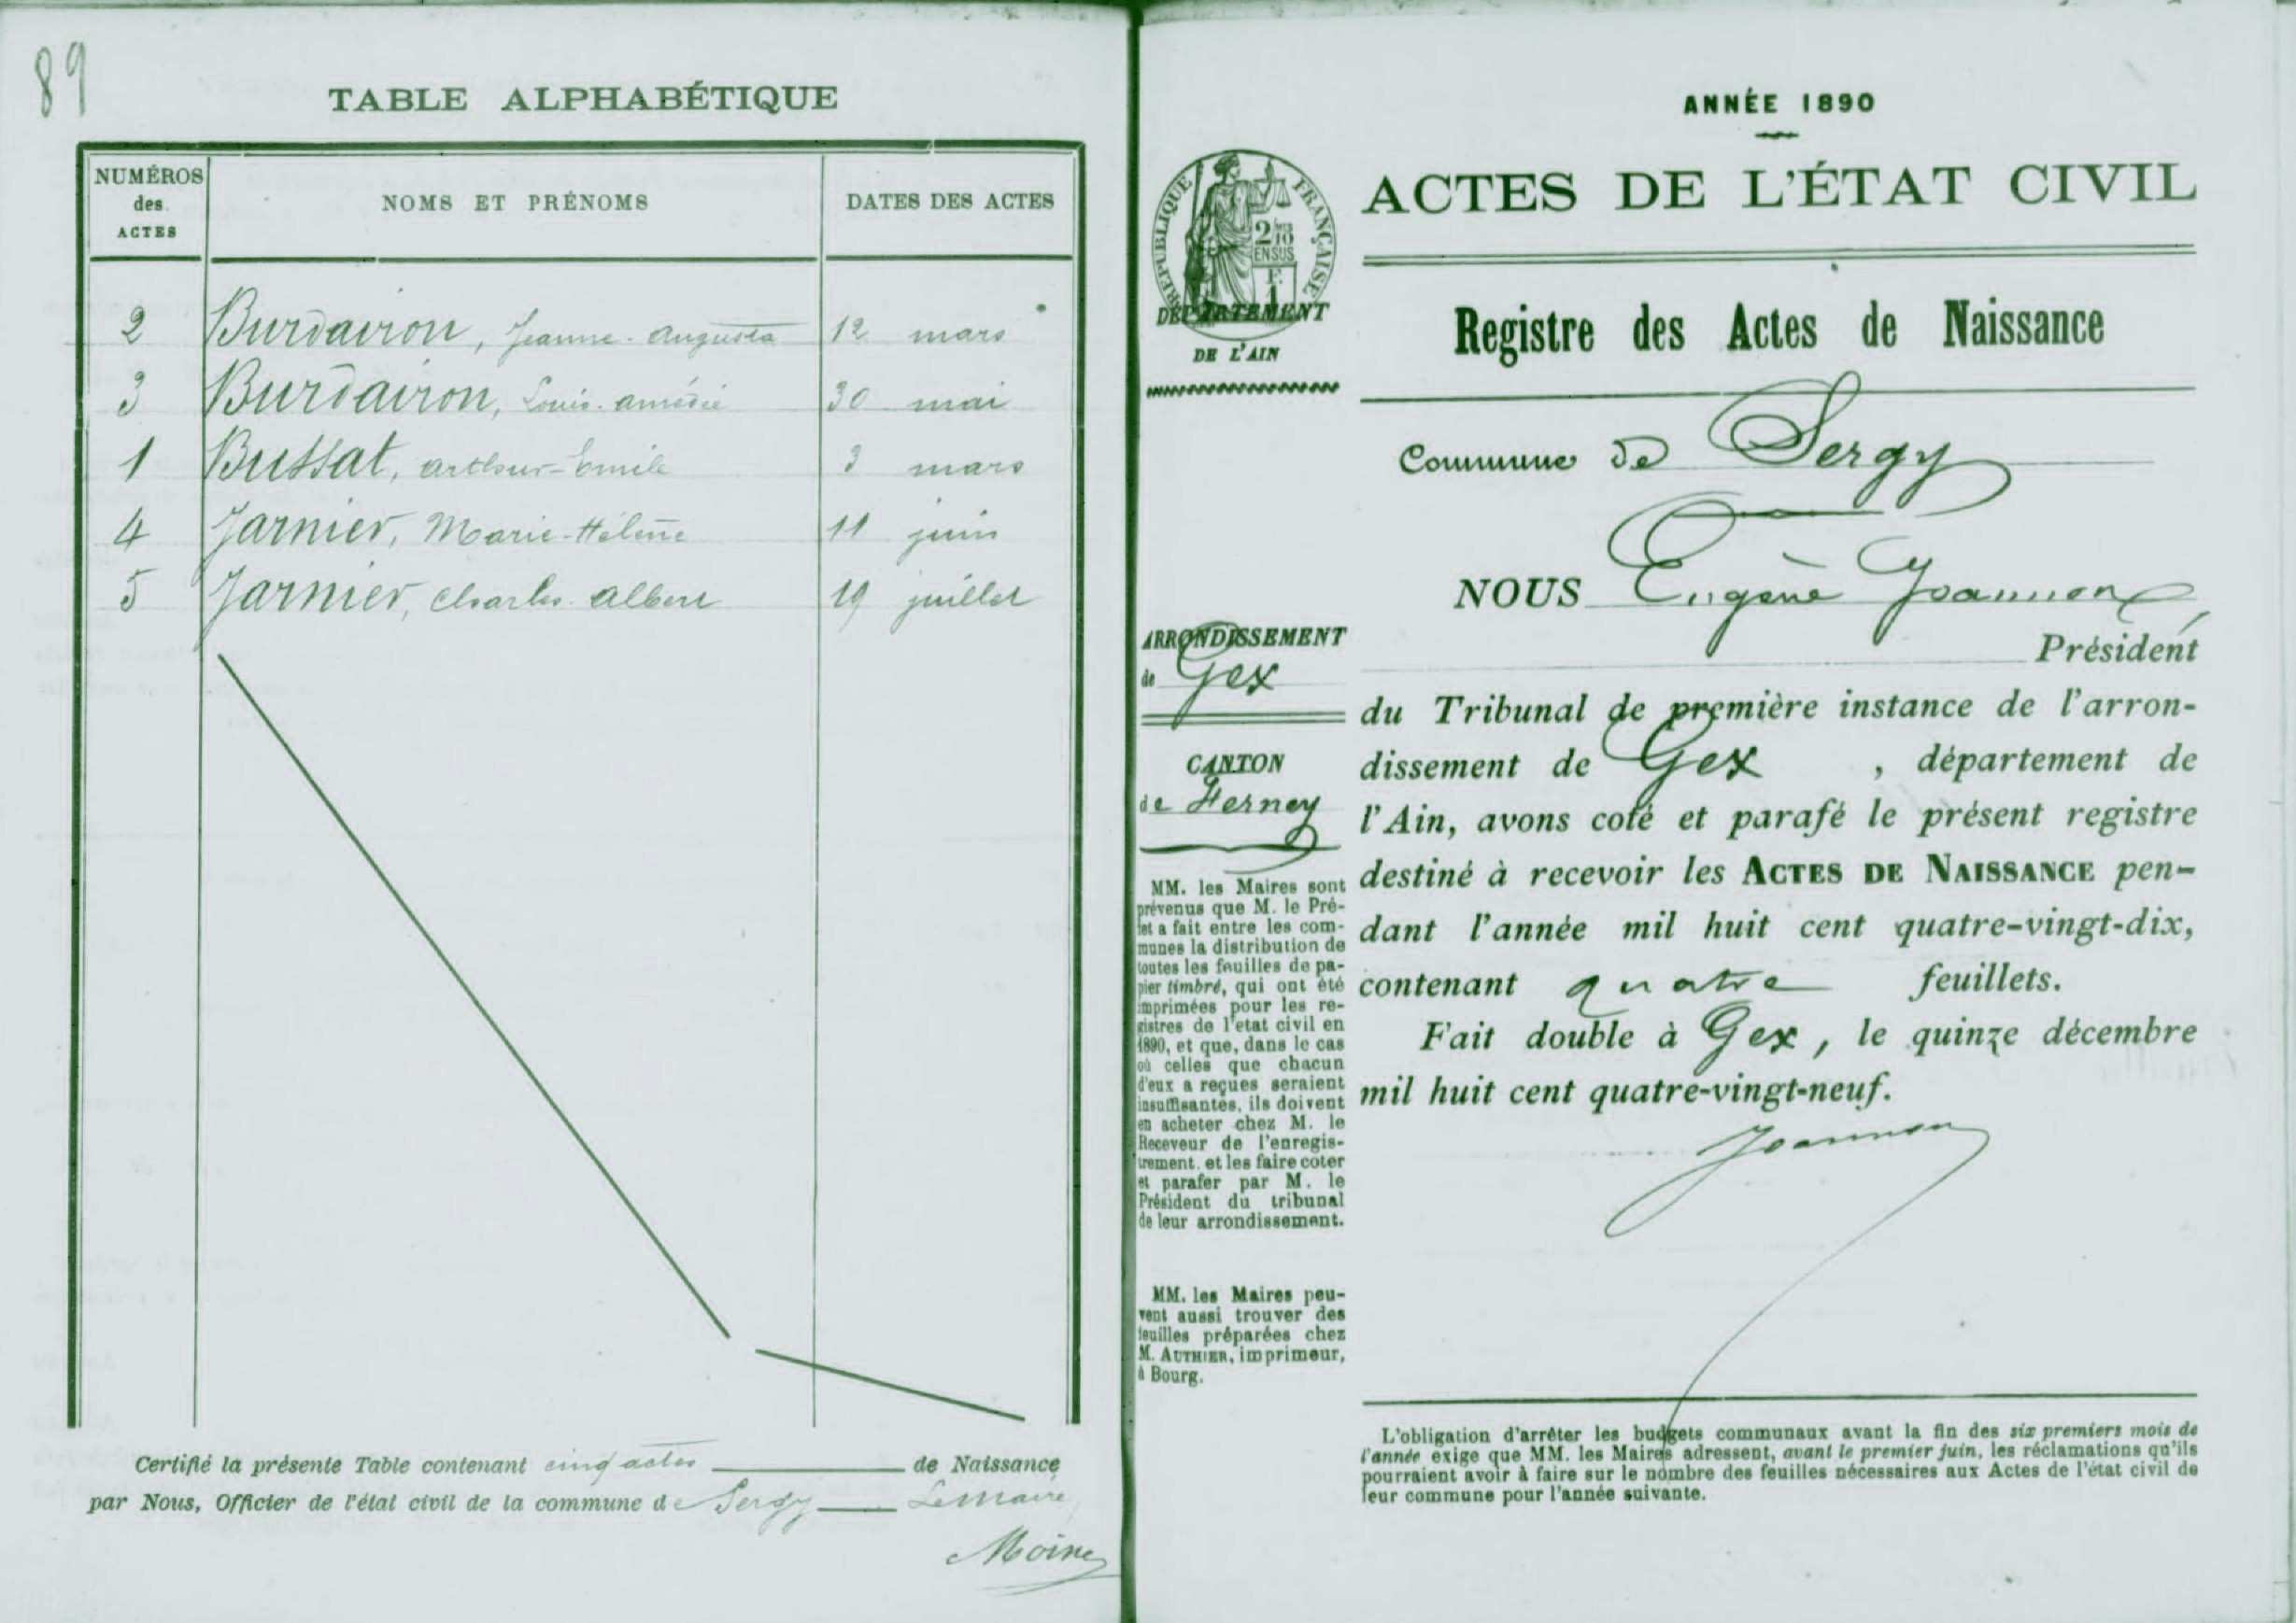 89
TABLE ALPHABÉTIQUE
NUMÉROS
des
ACTES
NOMS ET PRÉNOMS
DATES DES ACTES
2 Burdairon, Jeanne-Augusta 12 mars
3 Burdairon, Louis-amédée 30 mai
1 Bussat, arthur-Emile 3 mars
4 Jarnier, Marie-Hélène 11 juin
5 Jarnier, Charles-Albert 19 juillet
Certifié la présente Table contenant cinq actes de Naissance
par Nous, Officier de l'état civil de la commune de Sergy Le Maire,
Moine
RÉPUBLIQUE FRANÇAISE
2/10
EN SUS
DÉPARTEMENT
DE L'AIN
ARRONDISSEMENT
de Gex
CANTON
de Ferney
MM. les Maires sont
prévenus que M. le Pré-
fet a fait entre les com-
munes la distribution de
toutes les feuilles de pa-
pier timbré, qui ont été
imprimées pour les re-
gistres de l'etat civil en
1890, et que, dans le cas
où celles que chacun
d'eux a reçues seraient
insuffisantes, ils doivent
en acheter chez M. le
Receveur de l'enregis-
trement. et les faire coter
et parafer par M. le
Président du tribunal
de leur arrondissement.
MM. les Maires peu-
vent aussi trouver des
feuilles préparées chez
M. AUTHIER, imprimeur,
à Bourg.
ANNÉE 1890
ACTES DE L'ÉTAT CIVIL
Registre des Actes de Naissance
Commune de Sergy
NOUS Eugène Joannon,
Président
du Tribunal de première instance de l'arron-
dissement de Gex, département de
l'Ain, avons coté et parafé le présent registre
destiné à recevoir les ACTES DE NAISSANCE pen-
dant l'année mil huit cent quatre-vingt-dix,
contenant quatre feuillets.
Fait double à Gex, le quinze décembre
mil huit cent quatre-vingt-neuf.
Joannon
L'obligation d'arrêter les budgets communaux avant la fin des six premiers mois de
l'année exige que MM. les Maires adressent, avant le premier juin, les réclamations qu'ils
pourraient avoir à faire sur le nombre des feuilles nécessaires aux Actes de l'état civil de
leur commune pour l'année suivante.